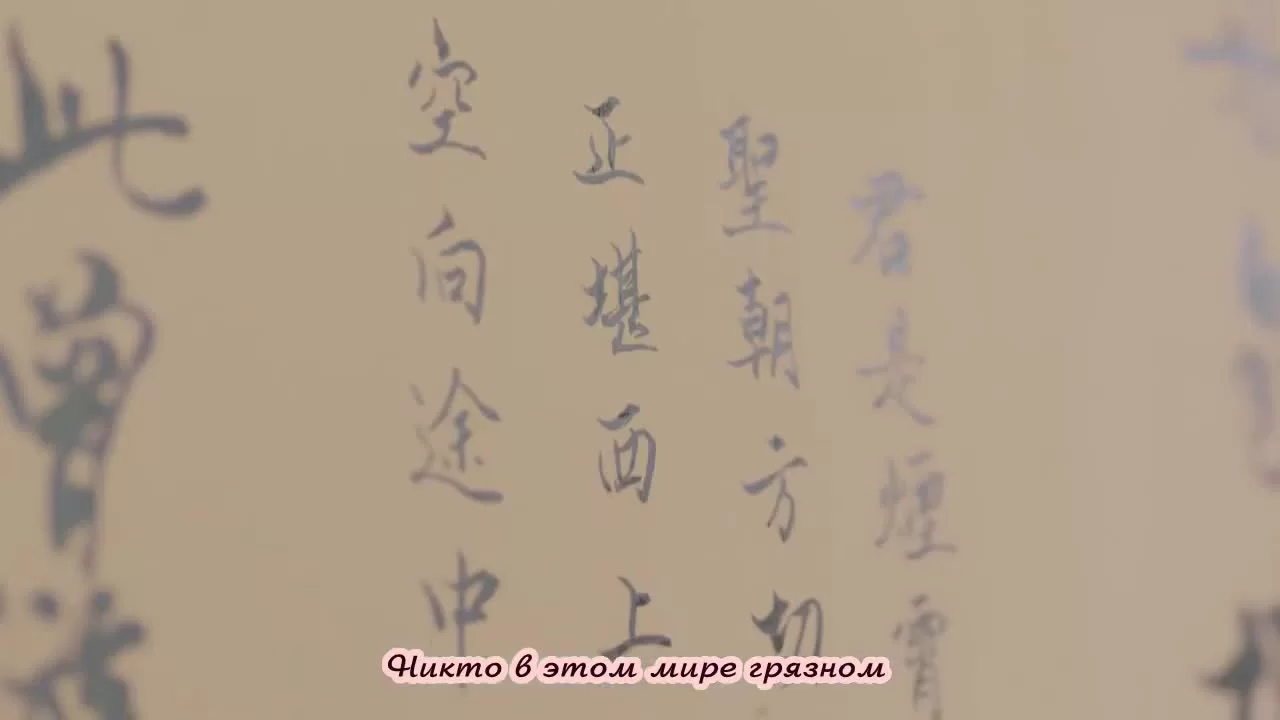 君是煙霄
聖朝方切
正堪西上
空向途中
此曾
Никто в этом мире грязном